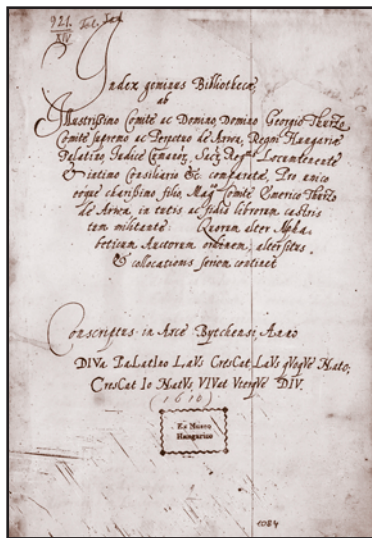 921. Fol. Lat.
XIV
Index geminus Bibliothecæ
ab
Illustrissimo Comite ac Domino Domino Georgio Thurzo
Comite supremo ac Perpetuo de Arwa, Regni Hungariæ
Palatino, Iudice Comanor, Sacæ Regiæ Locumtenente
& intimo Consiliario &c. comparatæ, Per unico
eoque charissimo filio, Magco Comite Emerico Thurzo
de Arwa, in tutis ac fidis librorum castris
tem militante: Quorum alter Alpha-
beticum Auctorum ordinem, alter situs
& collocationis seriem continet
Conscriptus in Arce Bytchensi, Anno
DIVa PaLatIno LaVs CresCat, LaVs qVoqVe Nato;
CresCat Io NatVs, VIVat VterqVe DIV.
(1610)
Ex Museo
Hungarico
1084